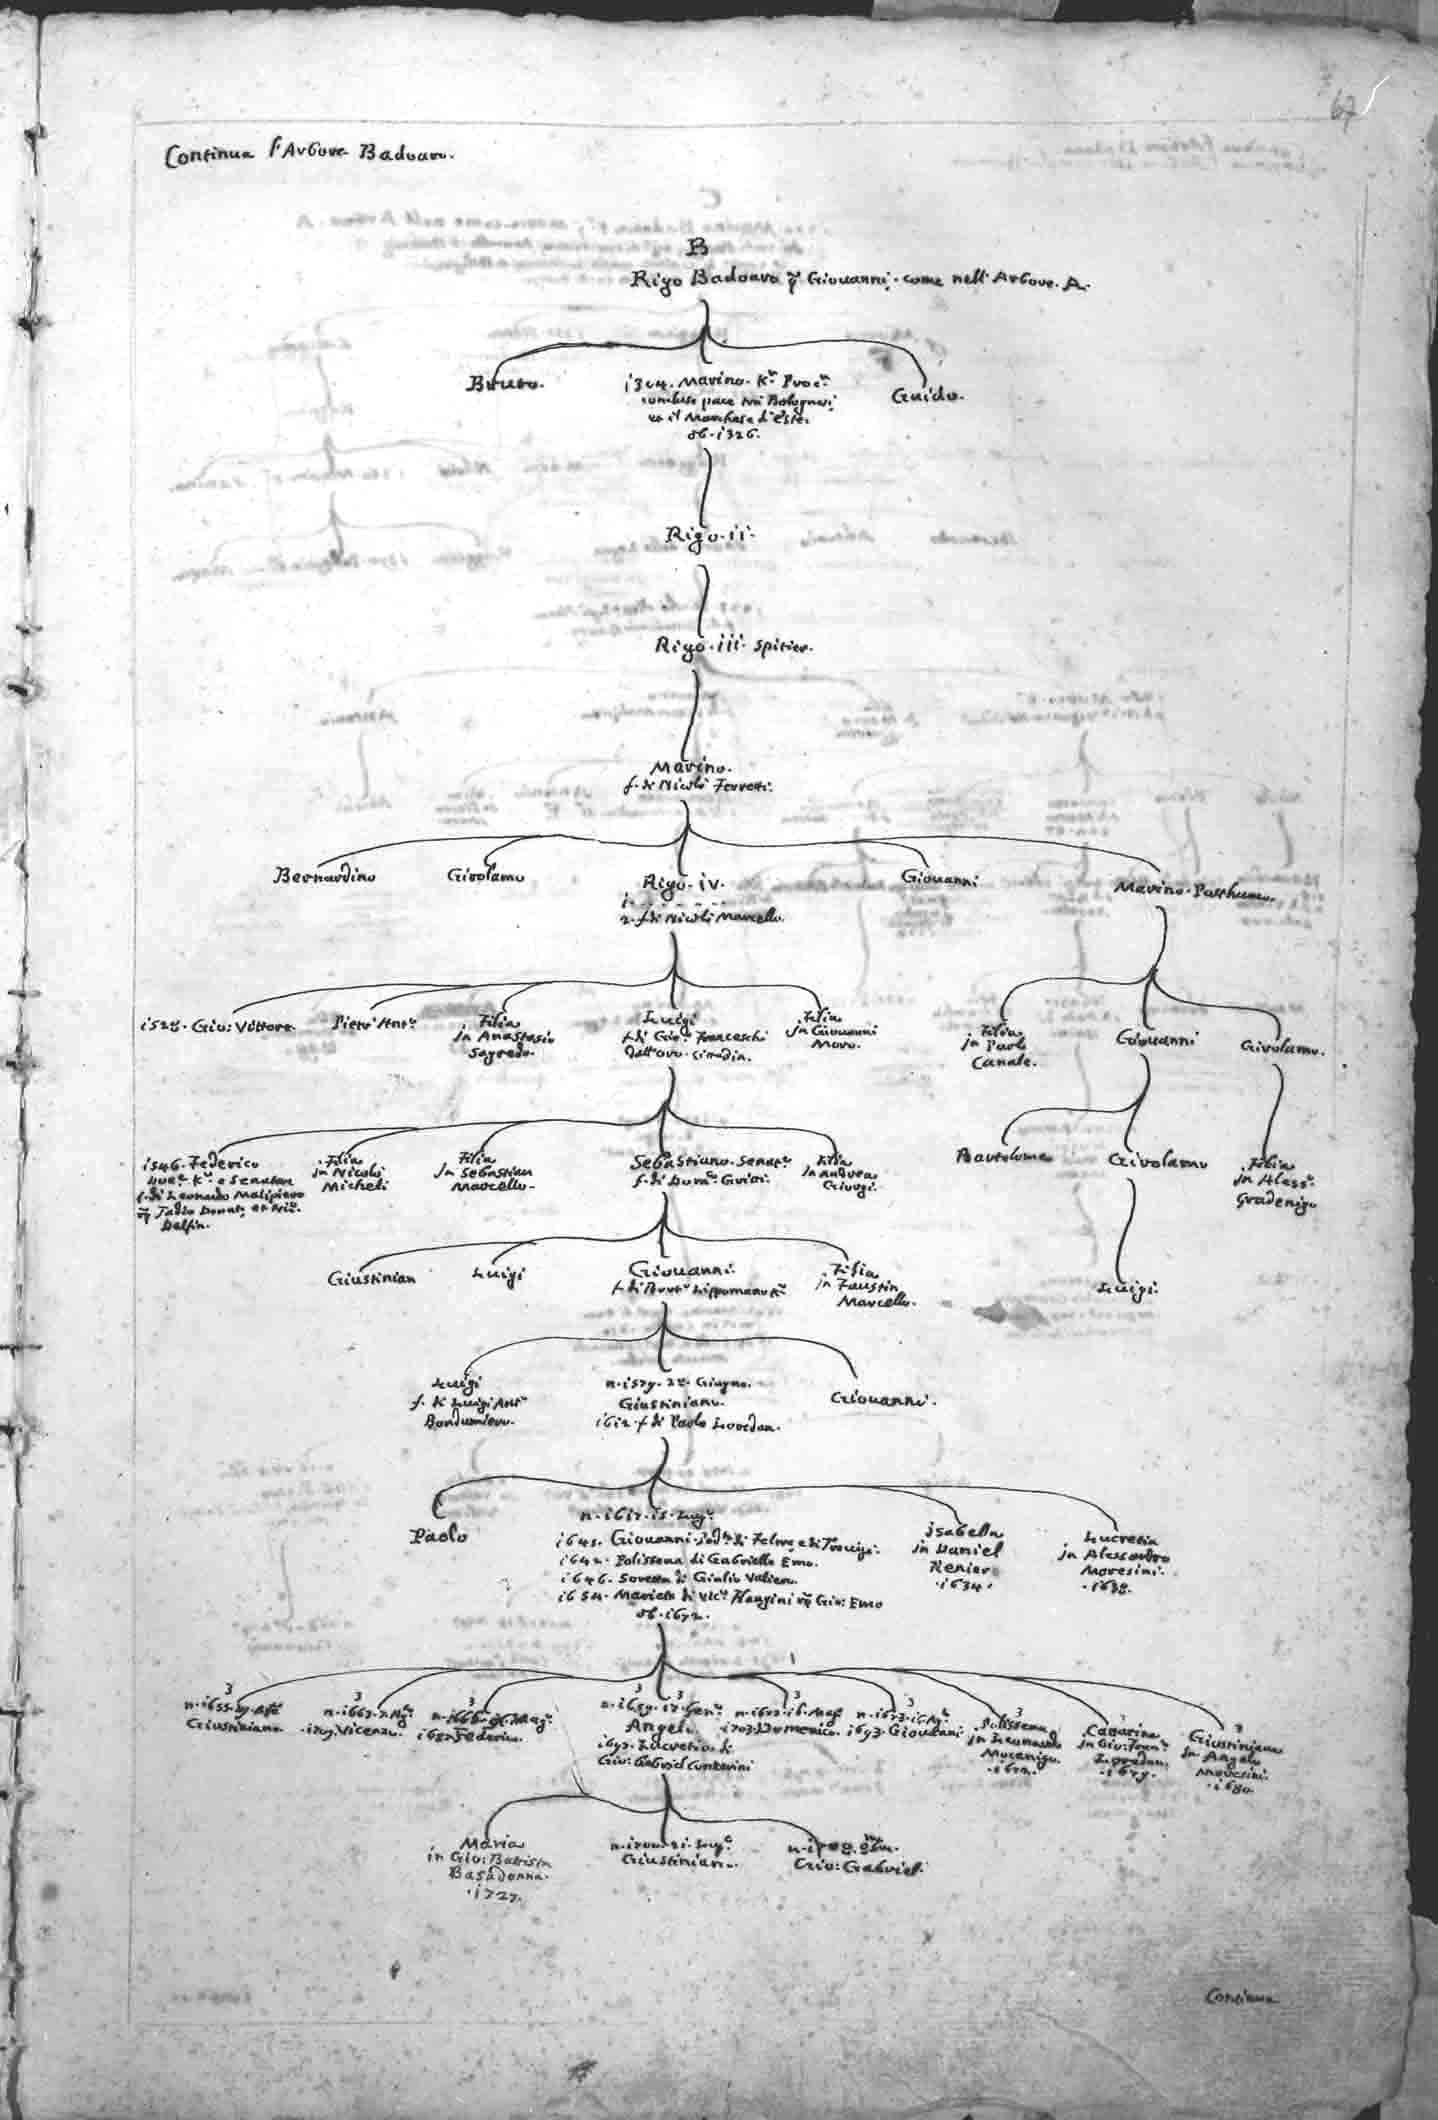 67
Continua l'Arbore Badoaro.
B
Rigo Badoaro q. Giovanni come nell'Arbore. A.
Bruto.
i304. Marino. Kr. Procr.
concluse pace tra Bolognesi
et il Marchese d'Este.
ob. i326.
Guido.
Rigo. ii.
Rigo. iii. spitier.
Marino.
f. di Nicolò Ferretti.
Bernardino
Girolamo
Rigo. iv.
i.
2. f. di Nicolò Marcello.
Giovanni
Marino. Posthumo.
Gio: Vittore.
Pietro Antº.
Filia
in Anastasio
Sagredo.
Luigi
f. di Giorº. Franceschi
dall'Oro. Cittadin.
Filia
in Giovanni
Moro.
Filia
in Paolo
Canale.
Giovanni
Girolamo.
i546. Federico
Kr. e Senator
f. di Leonardo Malipiero
Delfin.
Filia
in Nicolò
Micheli
Filia
in Sebastian
Marcello.
Sebastiano. Senatr.
f. di Gritti.
Filia
in Andrea
Giorgi.
Bortolomeo
Girolamo
Filia
in Aless.
Gradenigo
Giustinian
Luigi
Giovanni
f. di Lippomano Kr.
Filia
in Faustin
Marcello.
Luigi.
Luigi
f. di Luigi Antº
Bondumiero.
n. i579. Giugno.
Giustiniano.
i6i2. f. di Paolo Loredan.
Giovanni.
Paolo
n. i6i7. i5. Lugº.
Giovanni. di Feltre e di
i642. Polissena di Gabriello Emo.
i646. Soretta di Giulio Valier.
i654. Marieta di Vicº. Pangini Gio: Emo
ob. i672.
Isabella
in Daniel
Renier
. i634.
Lucretia
in Alessandro
Moresini.
. i638.
3
n. i655.
Giustiniano
3
n. i667.
Vicenzo.
3
Federico.
3
n. i659. i7. Genº.
Angelo
Lucretia di
Gio: Gabriel Contarini
3
n. i672. i6. Mag
i703. Domenico.
3
n. i673.
i693. Giovanni
3
Polissena
in Leonardo
Mocenigo
. i672.
Catarina
in Gio: Franº.
Loredan.
. i679.
Giustiniana
in Angelo
Moresini.
. i680.
Maria
in Gio: Battista
Basadonna.
. i727.
Giustinian.
Gio: Gabriel.
Continua